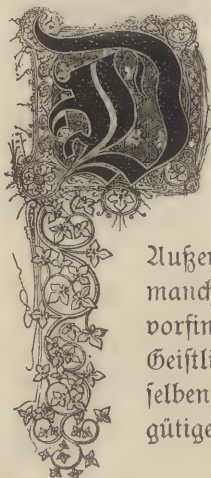 D
Außer
manch
vorfin
Geistli
selben
gütige